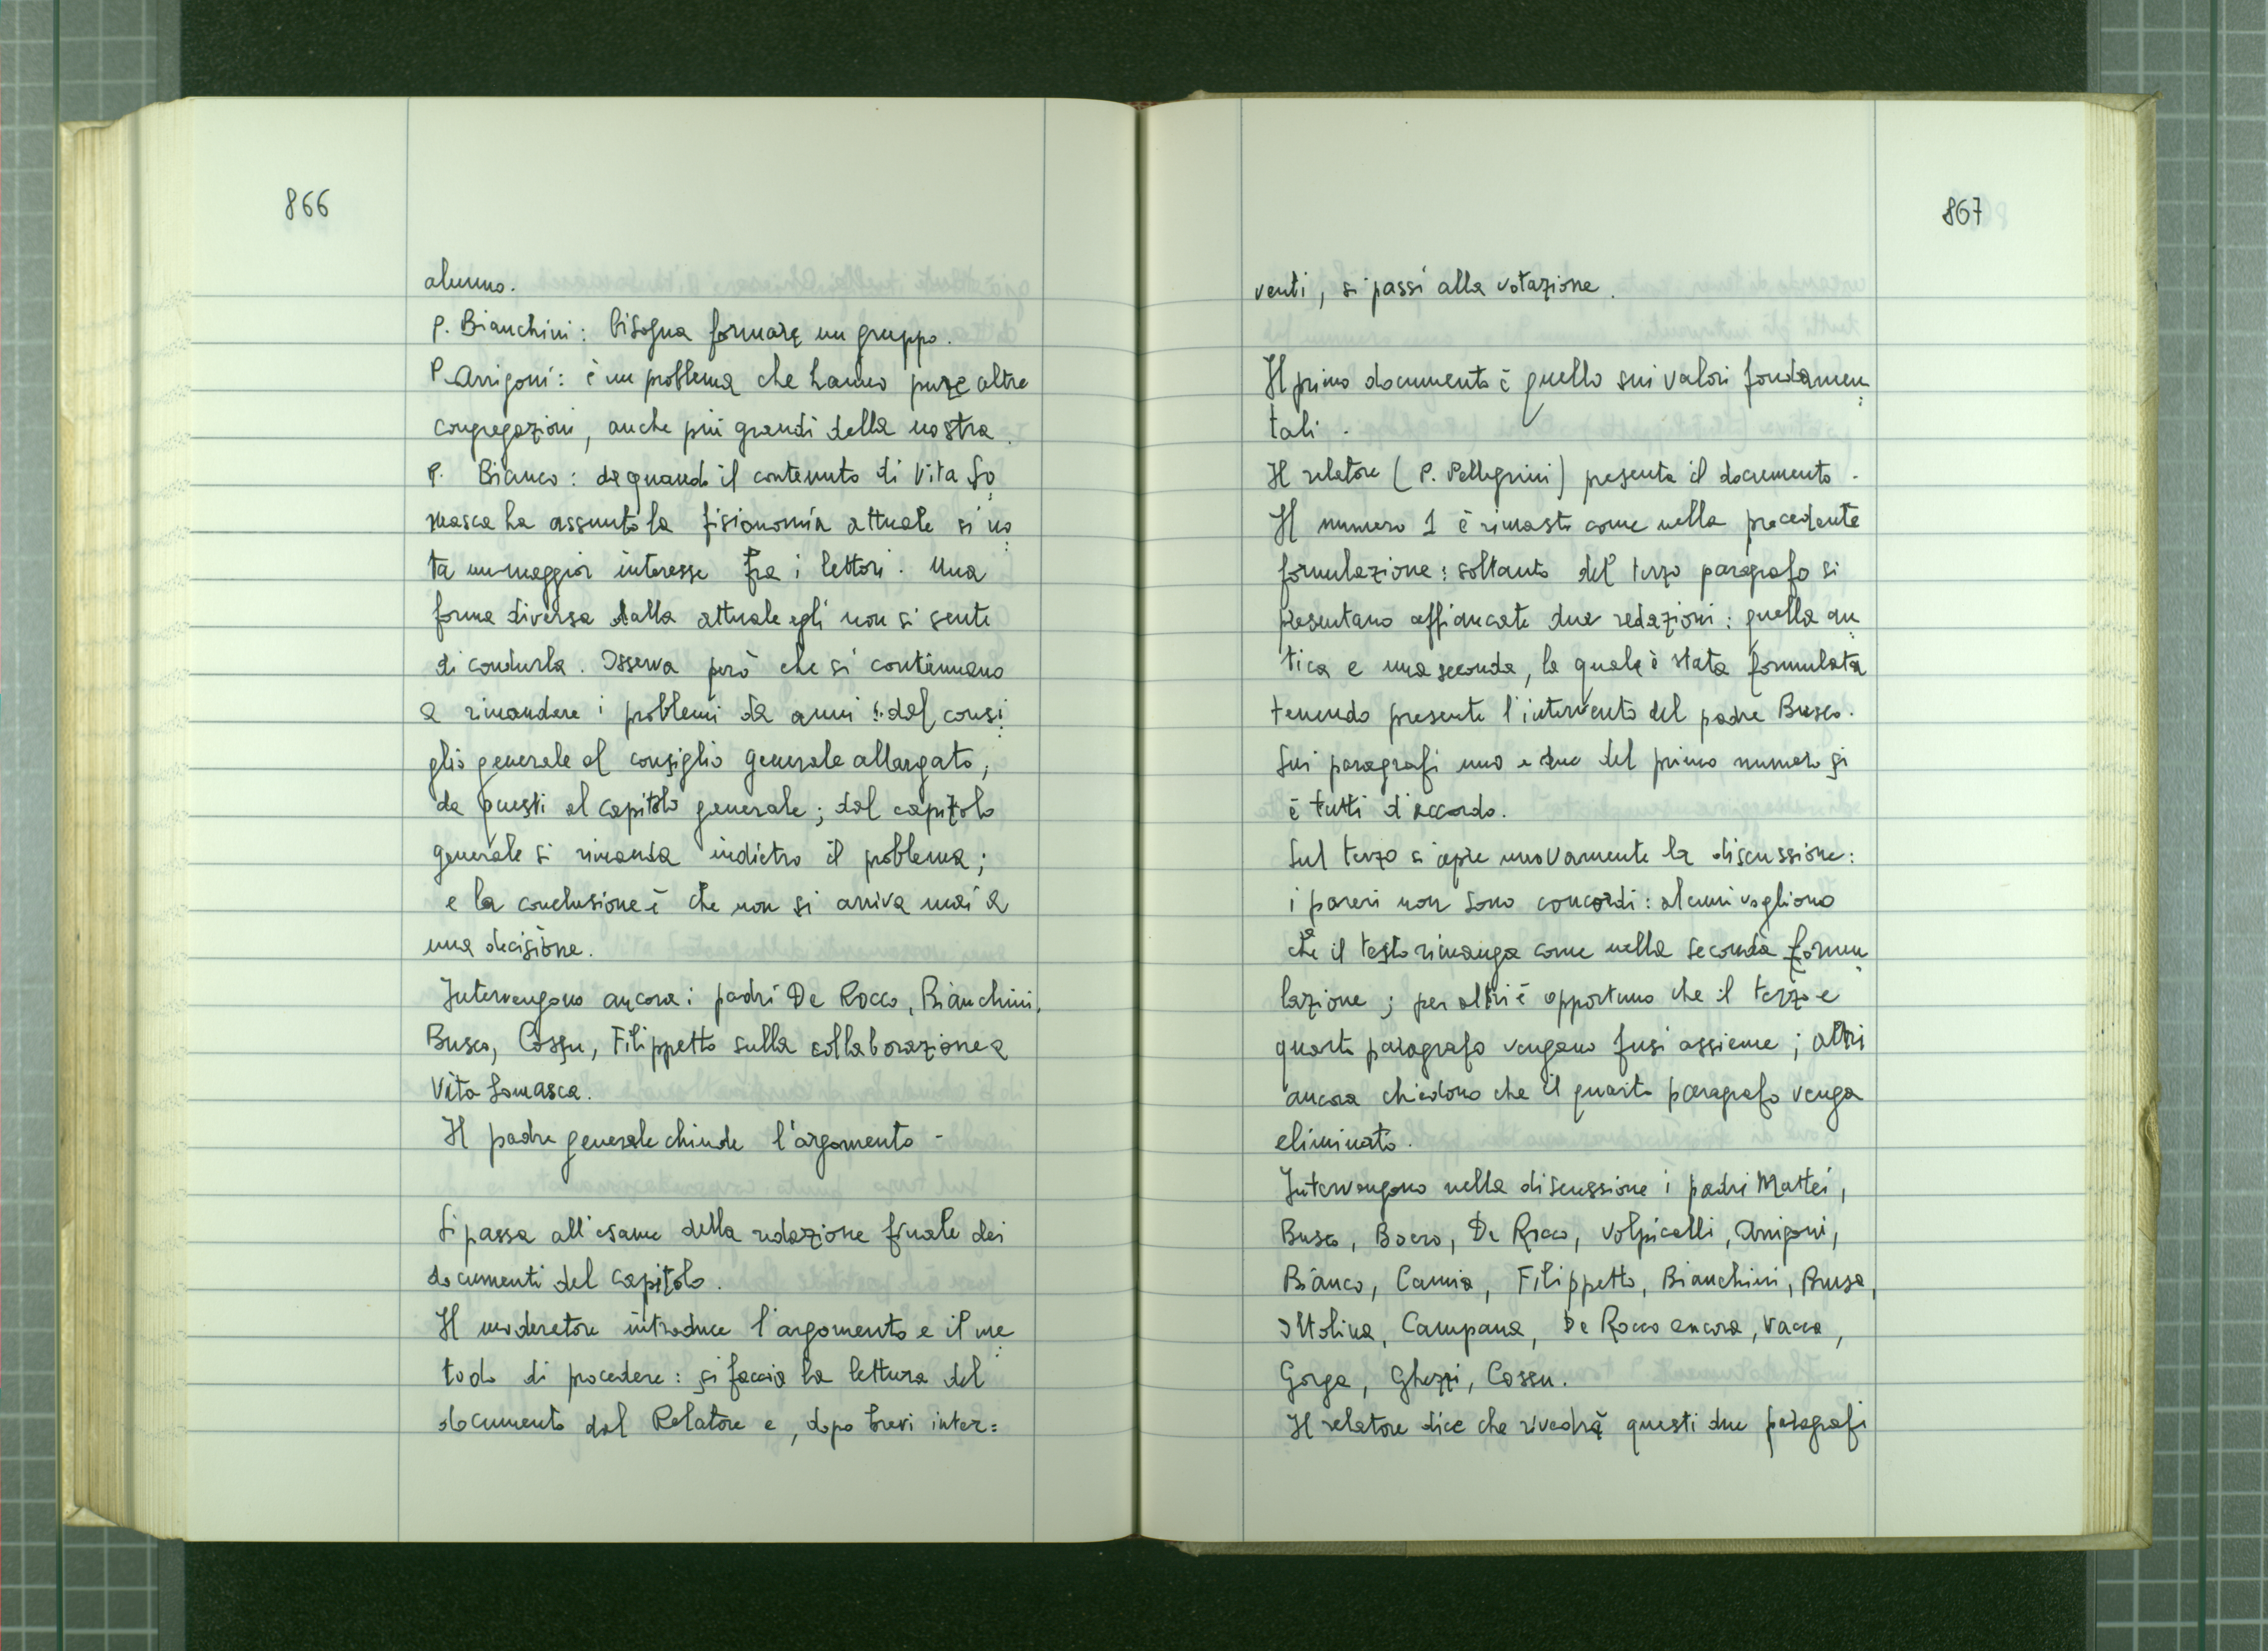 866
alunno.
P. Bianchini: bisogna formare un gruppo.
P. Arrigoni: è un problema che hanno pure altre
congregazioni, anche più grandi della nostra.
P. Bianco: da quando il contenuto di Vita So
masca ha assunto la fisionomia attuale si no
ta un maggior interesse fra i lettori. Una
forma diversa dalla attuale egli non si sente
di condurla. Osserva però che si continuano
a rimandare i problemi da anni: dal consi
glio generale al consiglio generale allargato;
da questi al capitolo generale; dal capitolo
generale si rimanda indietro il problema;
e la conclusione è che non si arriva mai a
una decisione.
Intervengono ancora i padri De Rocco, Bianchini,
Busco, Cossu, Filippetto sulla collaborazione a
Vita Somasca.
Il padre generale chiude l'argomento -
Si passa all'esame della redazione finale dei
documenti del capitolo.
Il moderatore introduce l'argomento e il me
todo di procedere: si faccia la lettura del
documento dal Relatore e, dopo brevi inter=
867
venti, si passi alla votazione.
Il primo documento è quello sui valori fondamen
tali.
Il relatore (P. Pellegrini) presenta il documento.
Il numero 1 è rimasto come nella precedente
formulazione: soltanto del terzo paragrafo si
presentano affiancate due redazioni: quella an
tica e una seconda, la quale è stata formulata
tenendo presente l'intervento del padre Busco.
Sui paragrafi uno e due del primo numero si
è tutti d'accordo.
Sul terzo si apre nuovamente la discussione:
i pareri non sono concordi: alcuni vogliono
che il testo rimanga come nella seconda formu
lazione; per altri è opportuno che il terzo e
quarto paragrafo vengano fusi assieme; altri
ancora chiedono che il quarto paragrafo venga
eliminato.
Intervengono nella discussione i padri Mattei,
Busco, Boero, De Rocco, Volpicelli, Arrigoni,
Bianco, Camia, Filippetto, Bianchini, Brusa,
Ottolina, Campana, De Rocco ancora, Vacca,
Gorga, Ghezzi, Cossu.
Il relatore dice che rivedrà questi due paragrafi